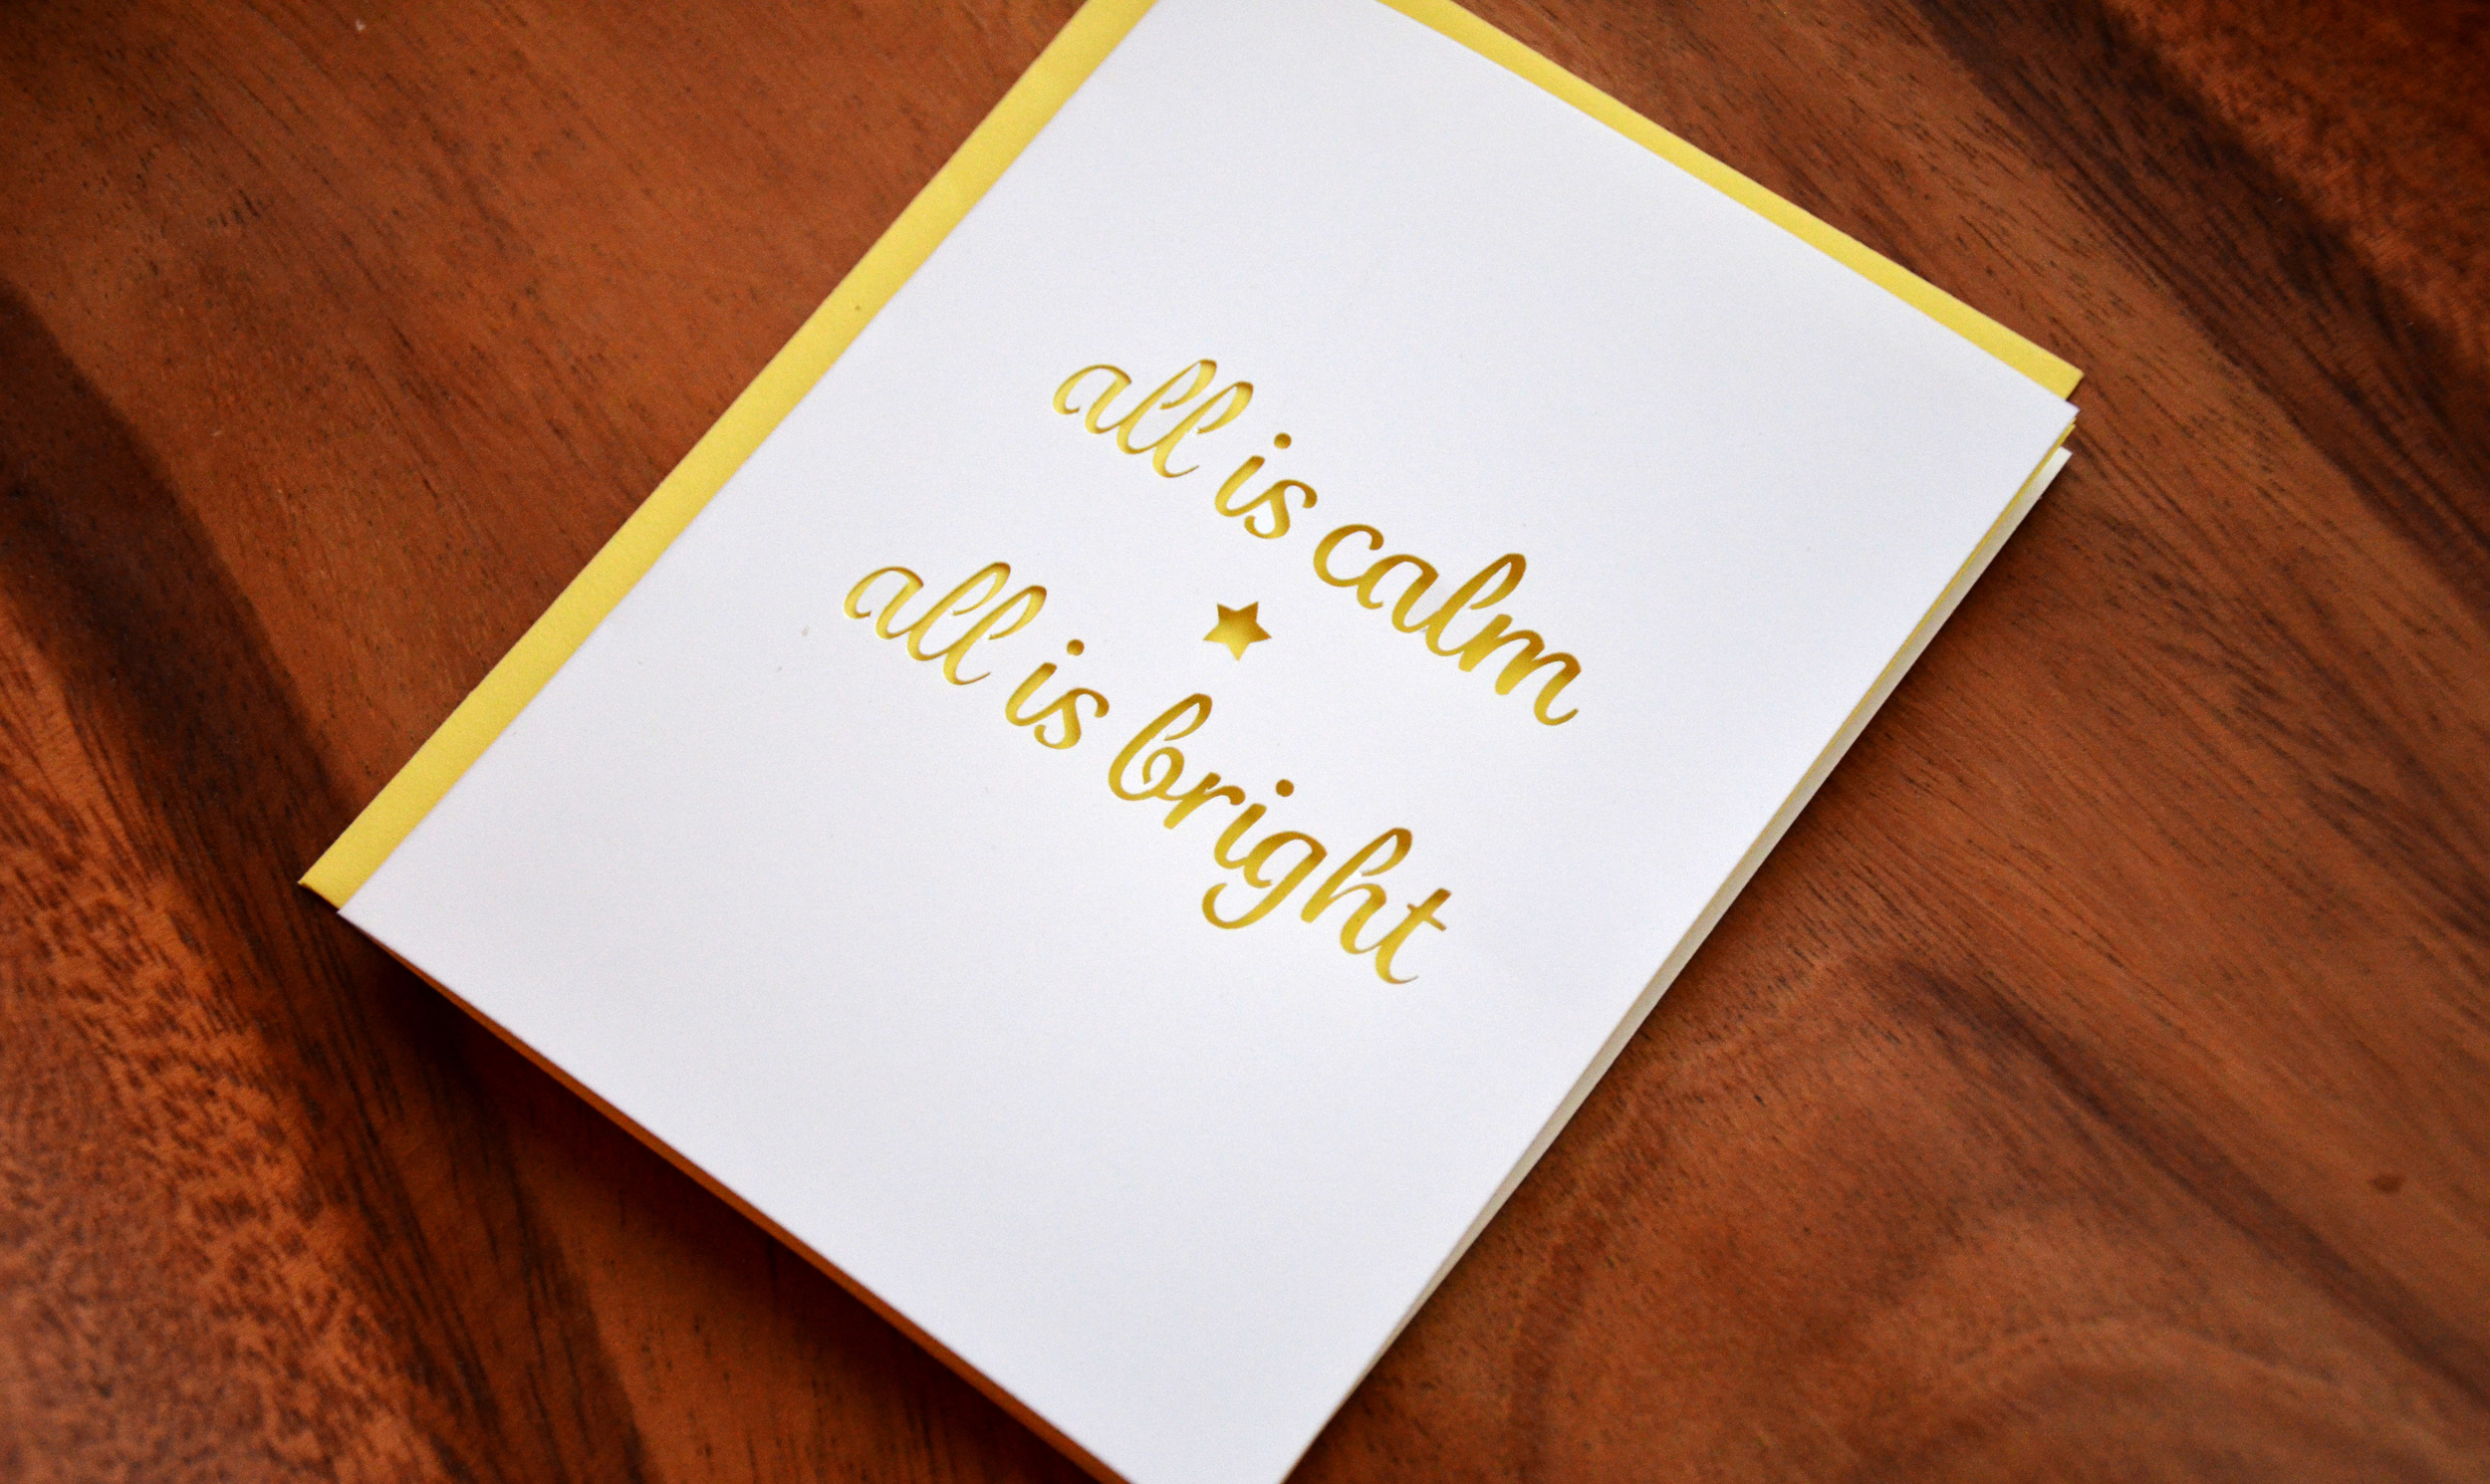 all is calm
all is bright